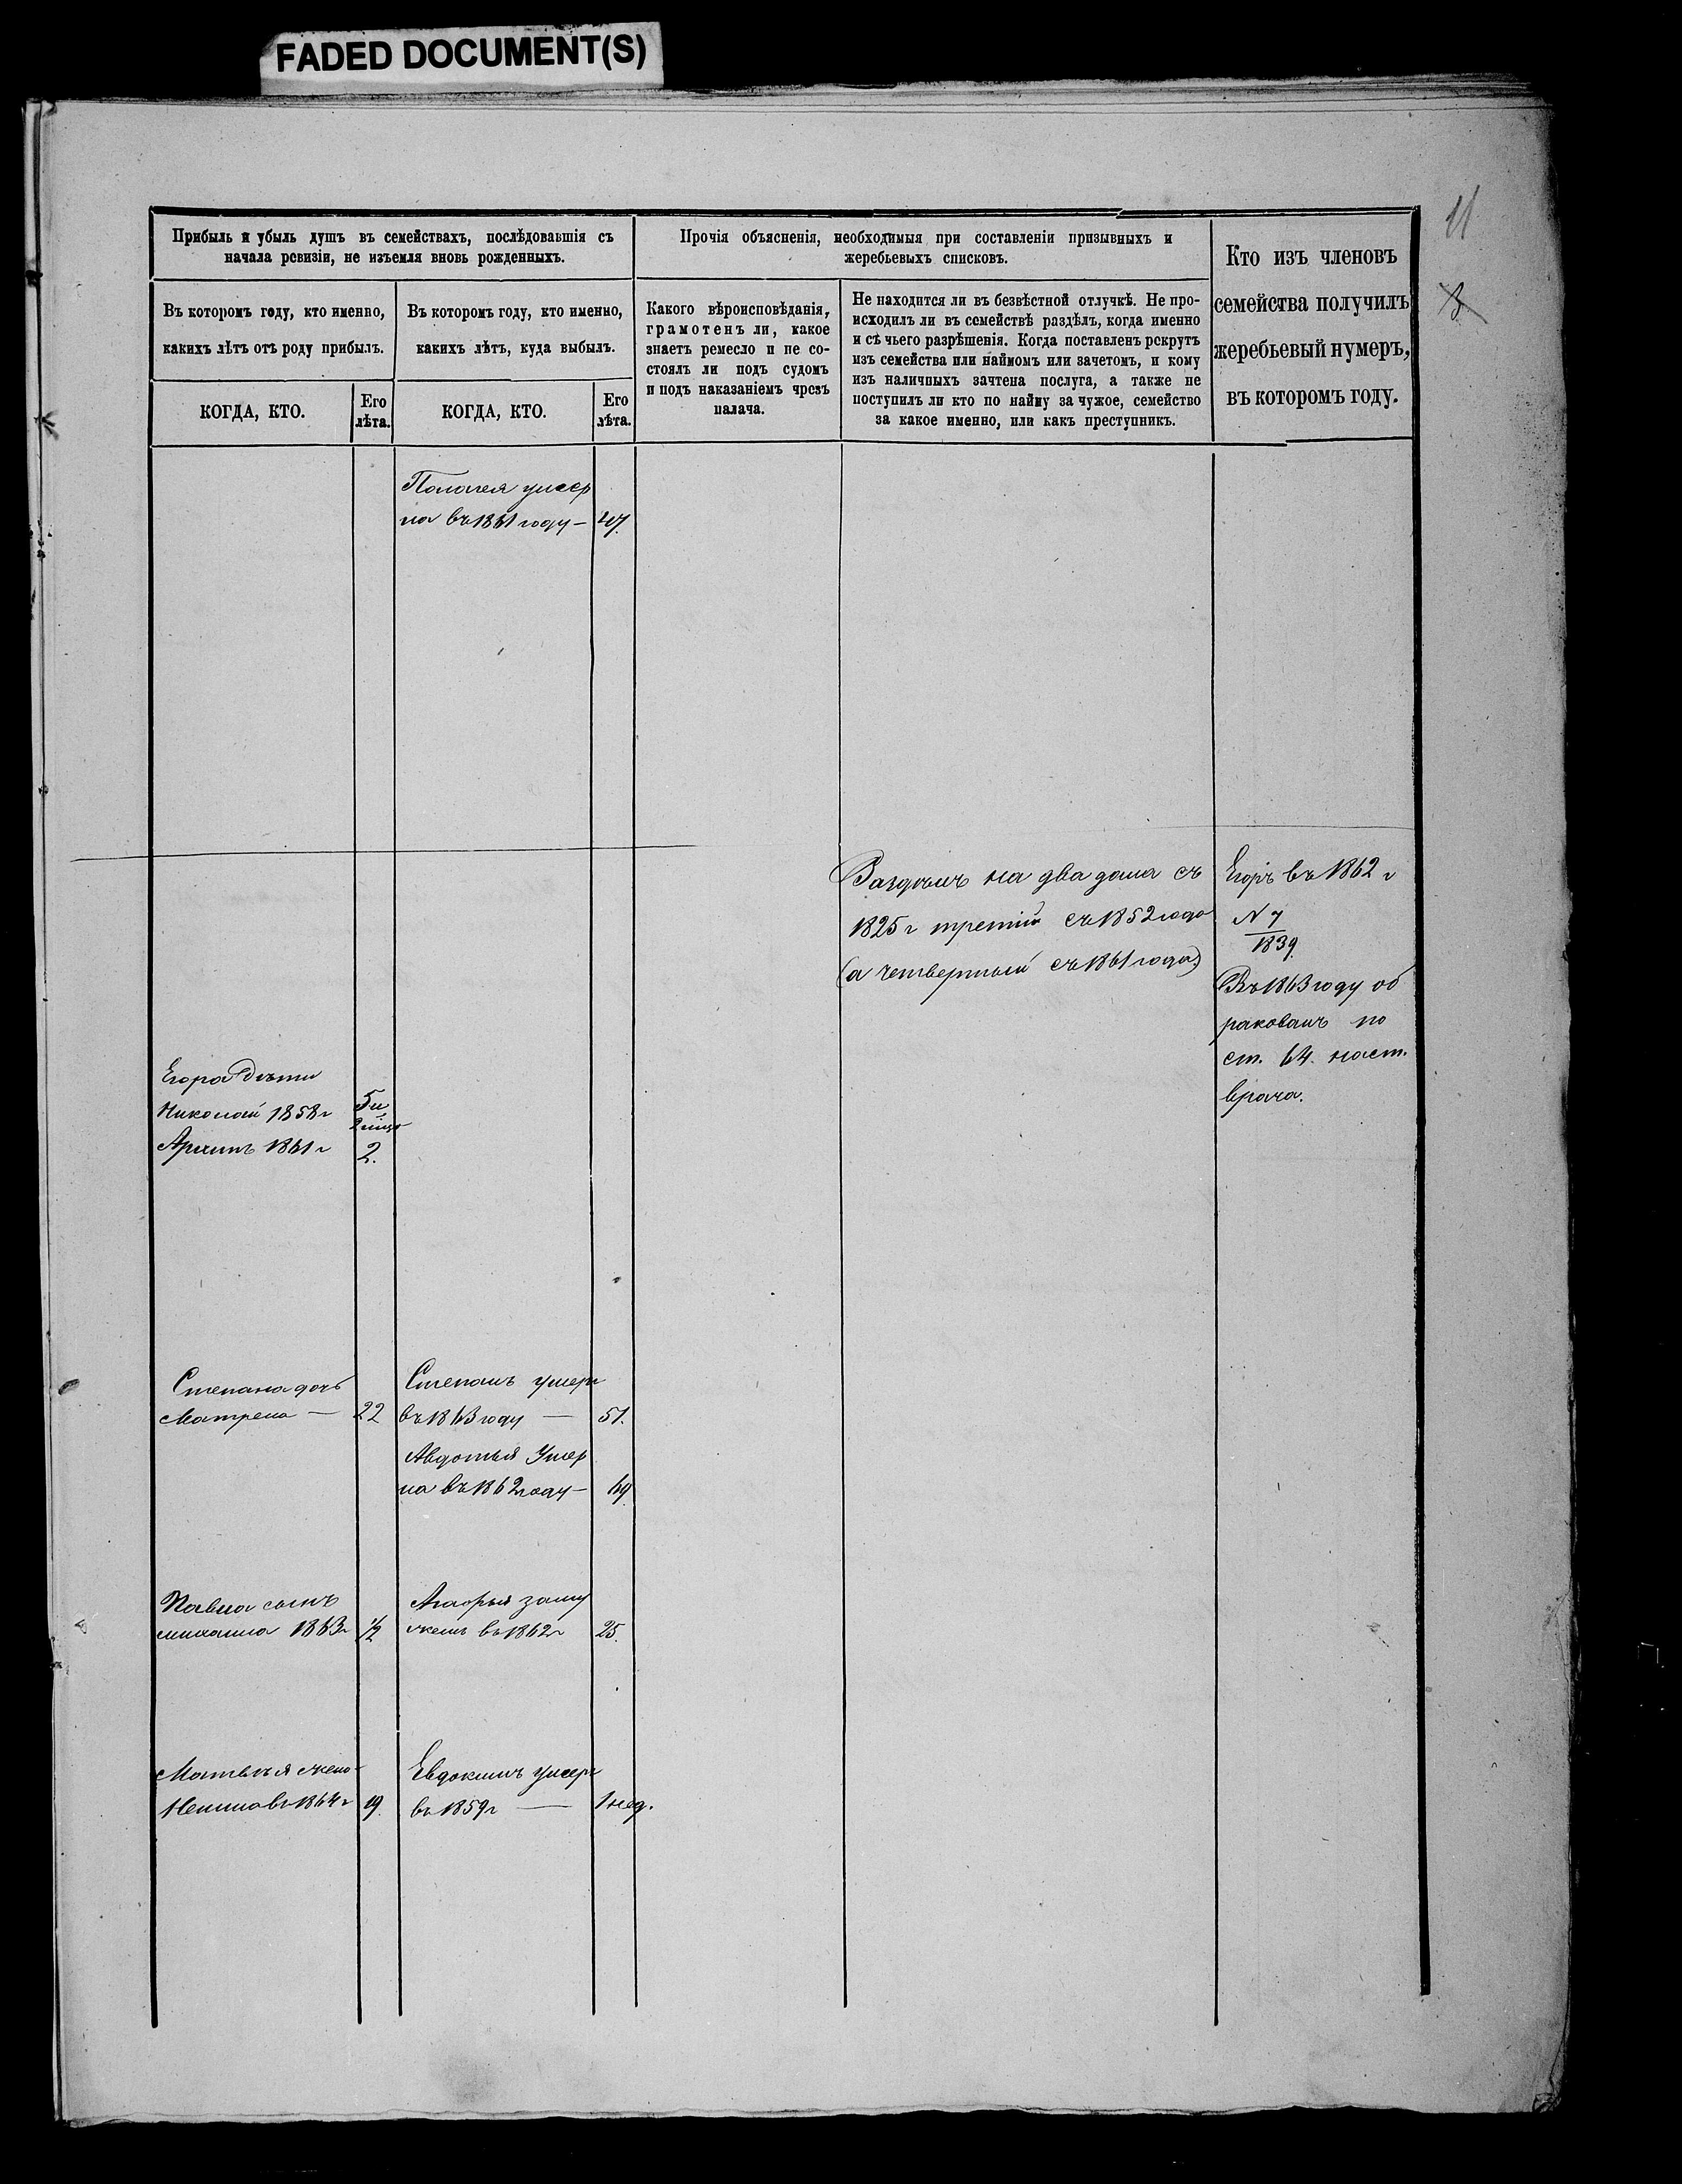 FADED DOCUMENT(S)
11
Прибыль и убыль душъ въ семействахъ, послѣдовавшія съ
начала ревизіи, не изъемля вновь рожденныхъ.
Прочія объясненія, необходимыя при составленіи призывныхъ и
жеребьевыхъ списковъ.
Кто изъ членовъ
семейства получилъ
жеребьевый нумеръ,
въ которомъ году.
Въ которомъ году, кто именно,
какихъ лѣтъ отъ роду прибылъ.
Въ которомъ году, кто именно,
какихъ лѣтъ, куда выбылъ.
Какого вѣроисповѣданія,
грамотенъ ли, какое
знаетъ ремесло и не со-
стоялъ ли подъ судомъ
и подъ наказаніемъ чрезъ
палача.
Не находится ли въ безвѣстной отлучкѣ. Не про-
исходилъ ли въ семействѣ раздѣлъ, когда именно
и съ чьего разрѣшенія. Когда поставленъ рекрутъ
изъ семейства или наймомъ или зачетомъ, и кому
изъ наличныхъ зачтена послуга, а также не
поступилъ ли кто по найму за чужое, семейство
за какое именно, или какъ преступникъ.
КОГДА, КТО.
Его
лѣта.
КОГДА, КТО.
Его
лѣта.
Палагея умер
ла въ 1861 году — 47.
Раздѣлъ на два дома съ
1825 г третій съ 1852 года
(а четвертый съ 1861 года)
Егоръ въ 1862 г
N 7
1839.
Въ 1863 году об
ракованъ по
ст. 64. наст.
врача.
Егора дѣти
Николай 1858 г 5 и
Архипъ 1861 г 2.
Степана дочь
Матрена — 22
Степанъ умеръ
въ 1863 году — 51.
Авдотья Умер
ла въ 1862 году — 69
Павла сынъ
михаила 1863 г 1/2
Агафья заму
жемъ въ 1862 г 25.
Матвѣя жена
въ 1864 г 19.
Евдокимъ умеръ
въ 1859 г — 1 нед.